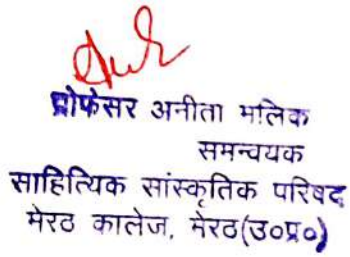 प्रोफेसर अनीता मलिक
समन्वयक
साहित्यिक सांस्कृतिक परिषद
मेरठ कालेज, मेरठ(उ०प्र०)